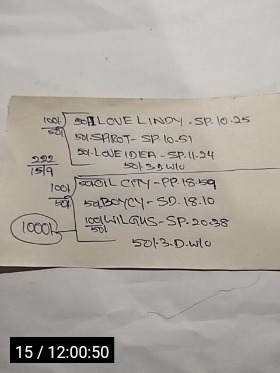 100/50/ 50/ I LOVE LINDY - SP. 10.25
50/. SPROT - SP 10.51
50/. LOVE IDEA - SP. 11.24
50/. 3. D. W/O
222
15/9
100/50/ 50/ OIL CITY - PP. 18.59
50/. BOYCY - SD. 18.10
100/50/ WILGUS - SP. 20.38
1000/-
50/. 3. D. W/O
15 / 12:00:50